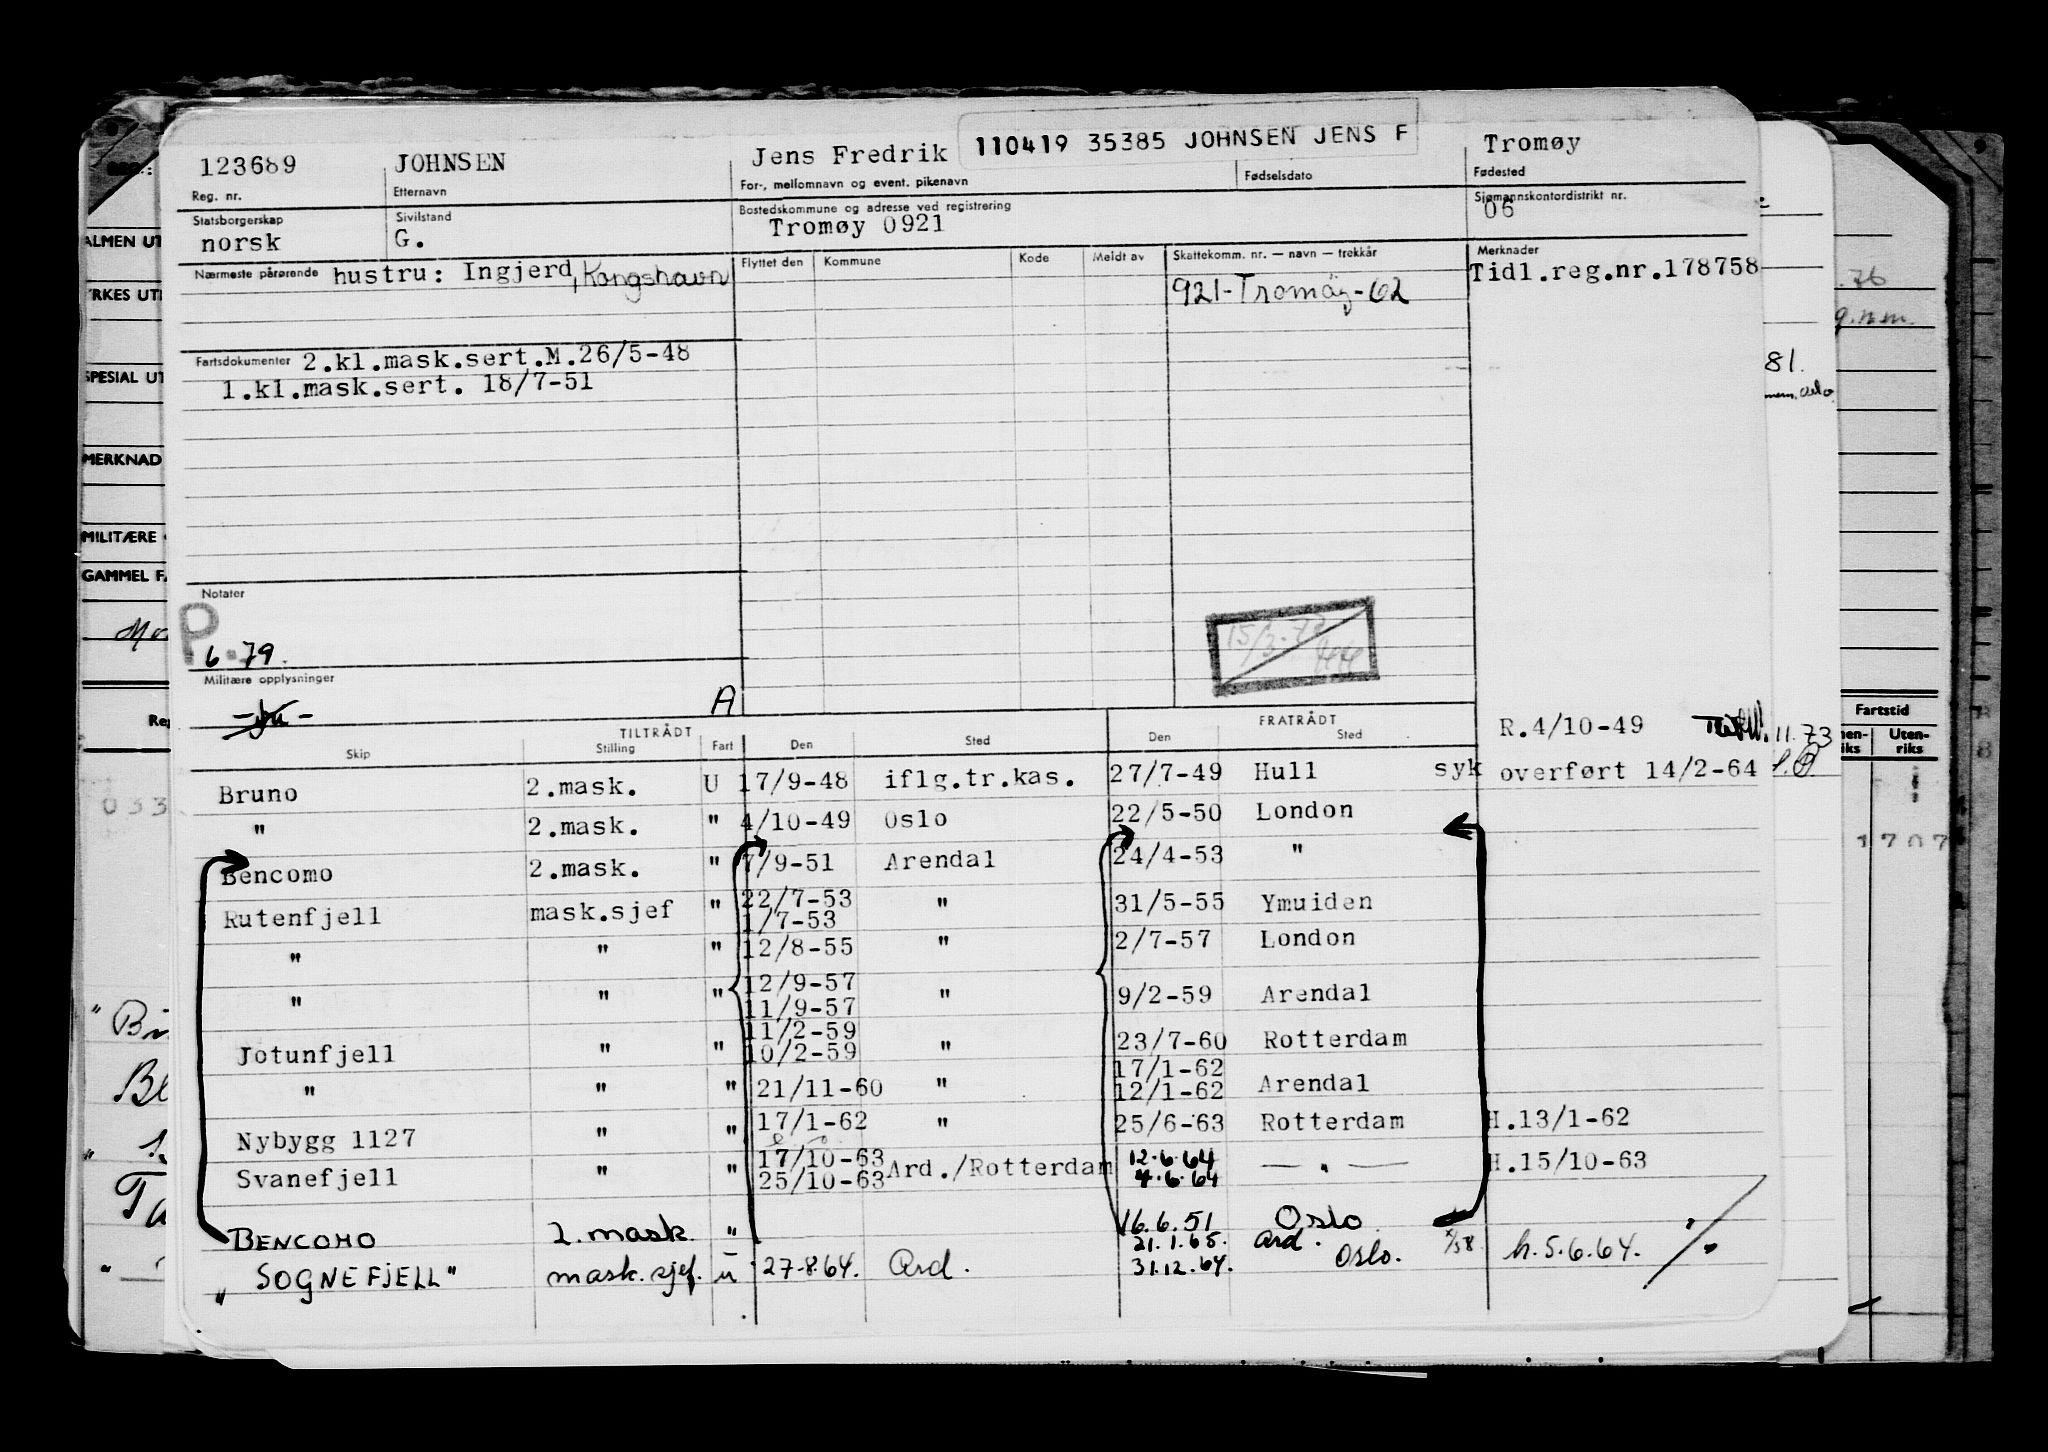 123689 JOHNSEN Jens Fredrik 110419 35385 JOHNSEN JENS F Tromøy
Reg. nr. Etternavn For-, mellomnavn og event. pikenavn Fødselsdato Fødested
Statsborgerskap Sivilstand Bostedskommune og adresse ved registrering Sjømannskontordistrikt nr.
norsk G. Tromøy 0921 06
Nærmeste pårørende hustru: Ingjerd, Kongshavn Flyttet den Kommune Kode Meldt av Skattekomm. nr. — navn — trekkår Merknader
921-Tromöy-62 Tidl.reg.nr.178758
Fartsdokumenter 2.kl.mask.sert.M.26/5-48
1.kl.mask.sert. 18/7-51
Notater
P
6-79.
15/3-73
Militære opplysninger
A
TILTRÅDT FRATRÅDT R.4/10-49 11.73
Skip Stilling Fart Den Sted Den Sted
Bruno 2.mask. U 17/9-48 iflg.tr.kas. 27/7-49 Hull syk overført 14/2-64
" 2.mask. " 4/10-49 Oslo 22/5-50 London
Bencomo 2.mask. " 7/9-51 Arendal 24/4-53 "
Rutenfjell mask.sjef " 22/7-53 1/7-53 " 31/5-55 Ymuiden
" " " 12/8-55 " 2/7-57 London
" " " 12/9-57 11/9-57 " 9/2-59 Arendal
Jotunfjell " " 11/2-59 10/2-59 " 23/7-60 Rotterdam
" " " 21/11-60 " 17/1-62 12/1-62 Arendal
Nybygg 1127 " " 17/1-62 " 25/6-63 Rotterdam H.13/1-62
Svanefjell " " 17/10-63 25/10-63 Ard./Rotterdam 12.6.64 4.6.64 — " — H.15/10-63
BENCOMO 2. mask. " 16.6.51 Oslo
"SOGNEFJELL" mask.sjef. u 27-8.64. Ard. 21.1.65. 31.12.64. Ard. Oslo. h.5.6.64.
ALMEN UT
YRKES UT
SPESIAL UT
MERKNAD
MILITÆRE
GAMMEL FA
Reg
033
76
g.n.m.
81.
Fartstid
Uten-
riks
1707